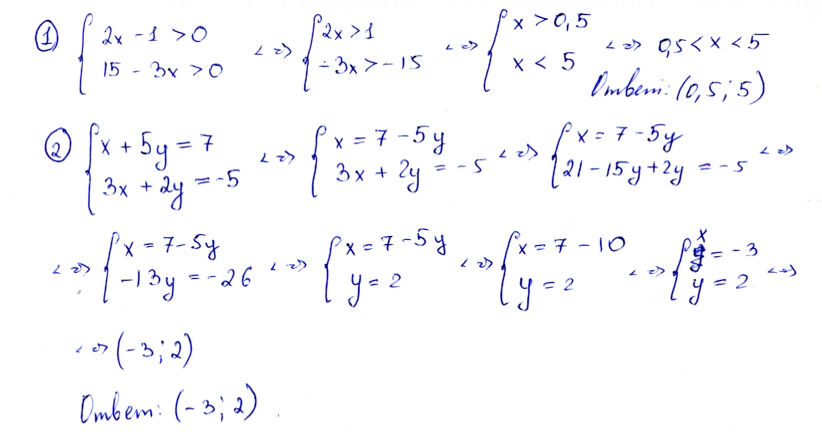 ① { 2x - 1 > 0 ; 15 - 3x > 0 <=> { 2x > 1 ; -3x > -15 <=> { x > 0,5 ; x < 5 <=> 0,5 < x < 5
Ответ: (0,5; 5)
② { x + 5y = 7 ; 3x + 2y = -5 <=> { x = 7 - 5y ; 3x + 2y = -5 <=> { x = 7 - 5y ; 21 - 15y + 2y = -5 <=>
<=> { x = 7 - 5y ; -13y = -26 <=> { x = 7 - 5y ; y = 2 <=> { x = 7 - 10 ; y = 2 <=> { x = -3 ; y = 2 <=>
<=> (-3; 2)
Ответ: (-3; 2).